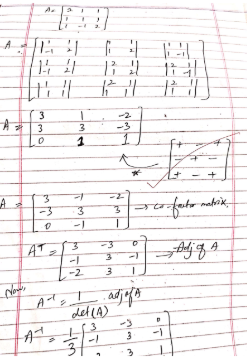 A = [2 1 1
1 1 1
1 -1 2]
A = [|1 1| |1 1| |1 1|
|-1 2| |1 2| |1 -1|
|1 1| |2 1| |2 1|
|-1 2| |1 2| |1 -1|
|1 1| |2 1| |2 1|
|1 1| |1 1| |1 1|]
A = [3 1 -2
3 3 -3
0 1 1]
*
[+ - +
- + -
+ - +]
A = [3 -1 -2
-3 3 3
0 -1 1] → Co-factor matrix.
Aᵀ = [3 -3 0
-1 3 -1
-2 3 1] → Adj of A
Now,
A⁻¹ = 1/det(A) . adj of A
A⁻¹ = 1/3 [3 -3 0
-1 3 -1
3 1